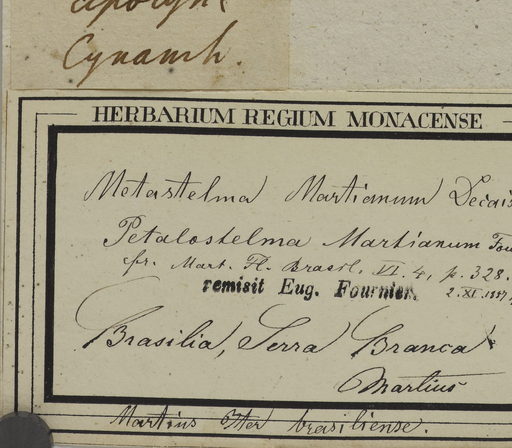 Apocyn
Cynanch.
HERBARIUM REGIUM MONACENSE
Metastelma Martianum Decais
Petalostelma Martianum Fou
fr. Mart. Fl. Brasil. VI. 4, p. 328.
remisit Eug. Fournier.
Brasilia, Serra Branca
Martius
Martius Iter brasiliense.